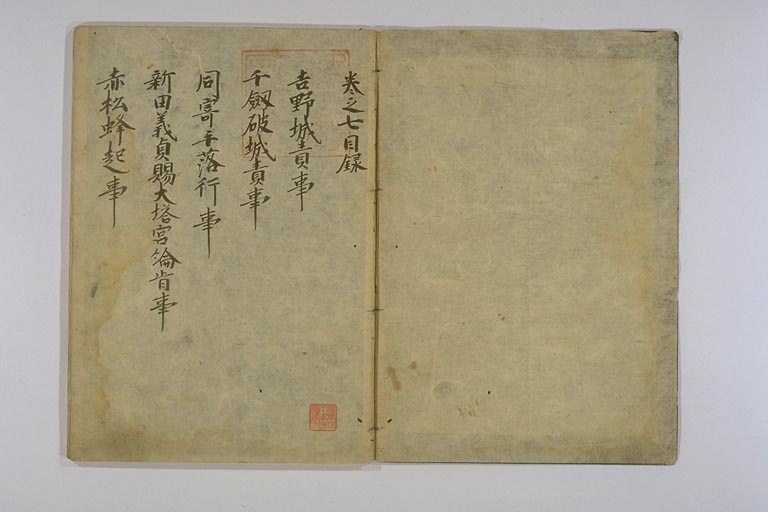 卷之七目録
吉野城責事
千劔破城責事
同寄手落行事
新田義貞賜大塔宮綸旨事
赤松蜂起事